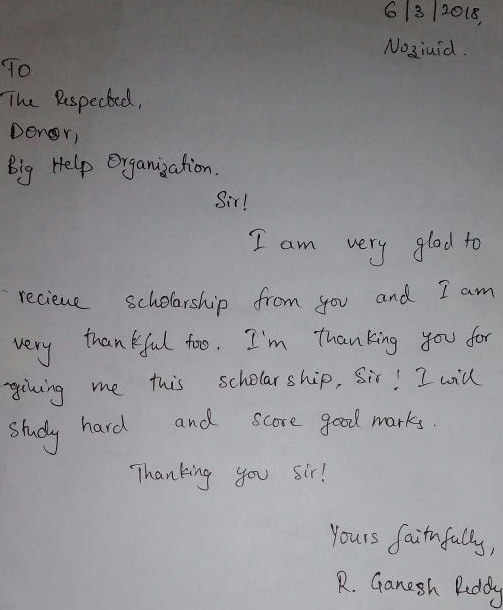 6/3/2018,
Nozivid.
To
The Respected,
Donor,
Big Help Organization.
Sir!
I am very glad to
recieve scholarship from you and I am
very thankful too. I'm thanking you for
giving me this scholarship, Sir! I will
study hard and score good marks.
Thanking you Sir!
Yours faithfully,
R. Ganesh Reddy